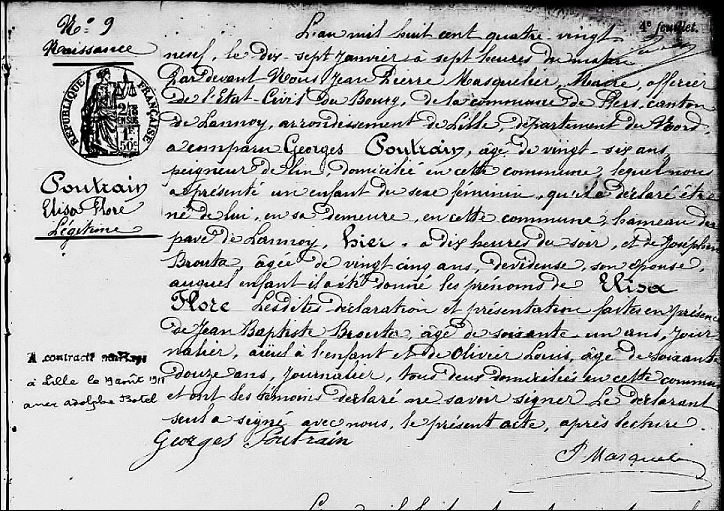 N.º 9
Naissance
4e feuillet.
RÉPUBLIQUE FRANÇAISE
1F 50c
Poutrain
Elisa Flore
Légitime
L'an mil huit cent quatre-vingt
neuf, le dix-sept janvier à sept heures du matin
Pardevant Nous Jean Pierre Masquelier, Maire, officier
de l'Etat-Civil du Bourg, de la commune de Flers, canton
de Lannoy, arrondissement de Lille, département du Nord,
a comparu Georges Poutrain, âgé de vingt-six ans,
peigneur de lin, domicilié en cette commune, lequel nous
a présenté un enfant du sexe féminin, qu'il a déclaré être
né de lui, en sa demeure, en cette commune, hameau du
pavé de Lannoy, hier, à dix heures du soir, et de Joséphine
Brouta, âgée de vingt cinq ans, dévideuse, son épouse,
auquel enfant il a été donné les prénoms de Elisa
Flore Lesdites déclaration et présentation faites en présence
de Jean Baptiste Brouta, âgé de soixante-un ans, jour
nalier, aïeul à l'enfant et de Olivier Louis, âgé de soixante
douze ans, journalier, tous deux domiciliés en cette commune
et ont les témoins déclaré ne savoir signer Le déclarant
seul a signé avec nous, le présent acte, après lecture.
Georges Poutrain
J Masquelier
A contracté mariage
à Lille le 19 août 1911
avec Adolphe Botel